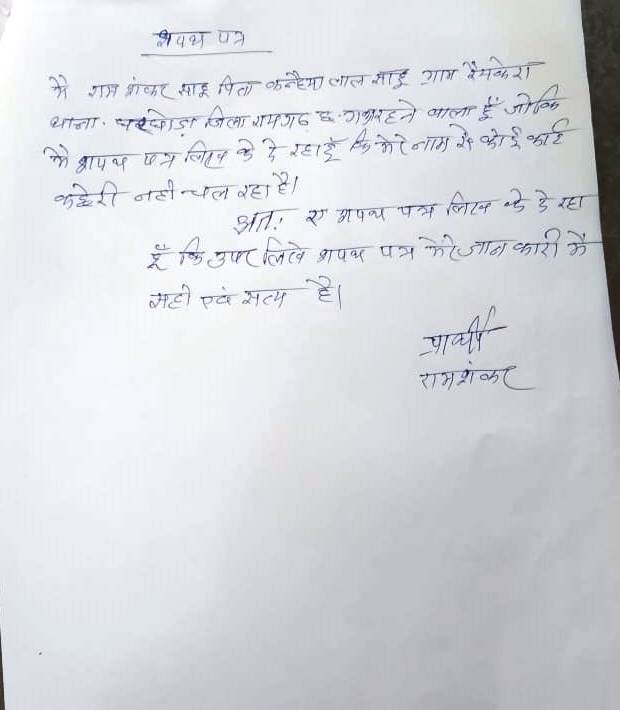 शपथ पत्र
मै राम शंकर साहू पिता कन्हैया लाल साहू ग्राम रैमकेरा
थाना. घरघोड़ा जिला रायगढ़ छ.ग. रहने वाला हूँ जोकि
मै शपथ पत्र लिख के दे रहा हूँ कि मेरे नाम से कोई कोर्ट
कछेरी नही चल रहा है।
अतः ए शपथ पत्र लिख के दे रहा
हूँ कि उपर लिखे शपथ पत्र मेरे जानकारी मे
सही एवं सत्य है।
प्रार्थी
रामशंकर